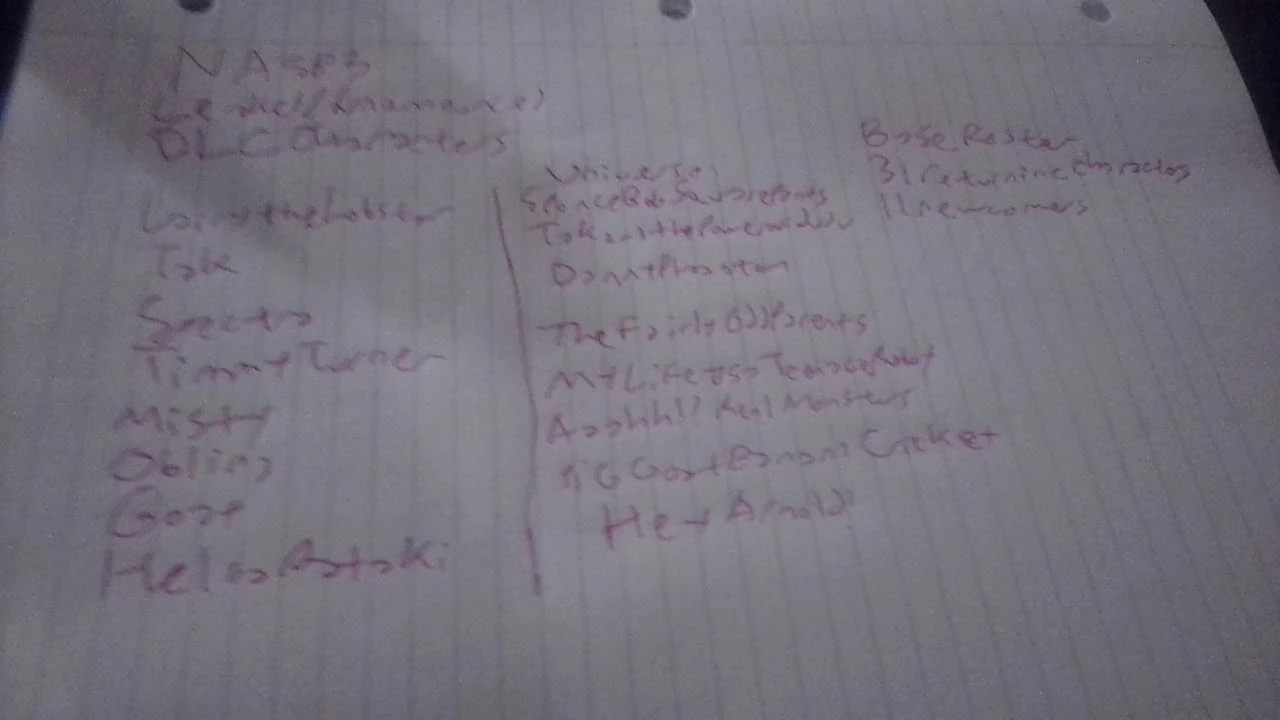 NASB3
DLC Characters
Larry the Lobster
Tak
Spectra
Timmy Turner
Misty
Oblina
Goat
Helga Pataki
Universe:
SpongeBob SquarePants
Tak and the Power of Juju
Danny Phantom
The Fairly OddParents
My Life as a Teenage Robot
Aaahh!!! Real Monsters
Big Goat Banana Cricket
Hey Arnold
Base Roster
31 returning characters
11 newcomers